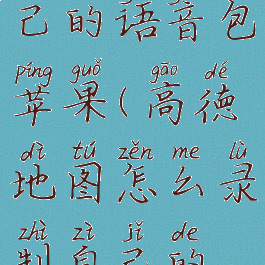 己的语音包
píng guǒ gāo dé
苹果(高德
dì tú zěn me lù
地图怎么录
zhì zì jǐ de
制自己的